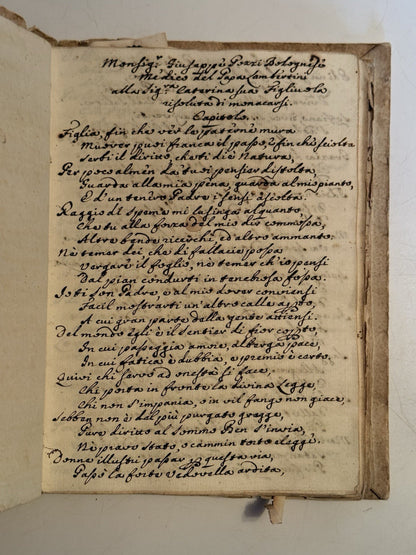 Monsig.r Giuseppe Pozzi Bolognese
Medico del Papa Lambertini
alla Sig.ra Caterina sua Figliuola
risoluta di monacarsi.
Capitolo.
Figlia, fin che ver le paterne mura
Muover puoi franca il passo, e fin che sciolta
Serbi il divino, che ti diè Natura,
Per poco almen da tuoi pensier distolta,
Guarda alla mia pena, guarda al mio pianto,
E d'un tenero Padre i sensi ascolta.
Raggio di speme mi lusinga alquanto,
Che tu alla forza del mio dir commossa,
Altre bende ricerchi, ed altro ammanto.
Nè temer dei, che di fallacie possa
Vergare il foglio, nè temer ch'io pensi
Dal pian condurti in tenebrosa fossa.
Io ti son Padre, e al mio dover conviensi
Facil mostrarti un'altro calle
A cui gran parte della gente attiensi.
Del mondo egli è il sentier di fior
In cui passeggia amore, alberga pace,
In cui fatica è dubbia, e premio è certo.
Quivi chi servo ad onestà si face,
Chi porta in fronte la divina legge,
Chi non s'impania, e in vil fango non giace,
Sebben non è del più purgato gregge,
Pure diviso al sommo Ben s'invia,
Nè pravo stato, o cammin torto elegge.
Donne illustri passar per questa via,
Passò la forte vedovella ardita,